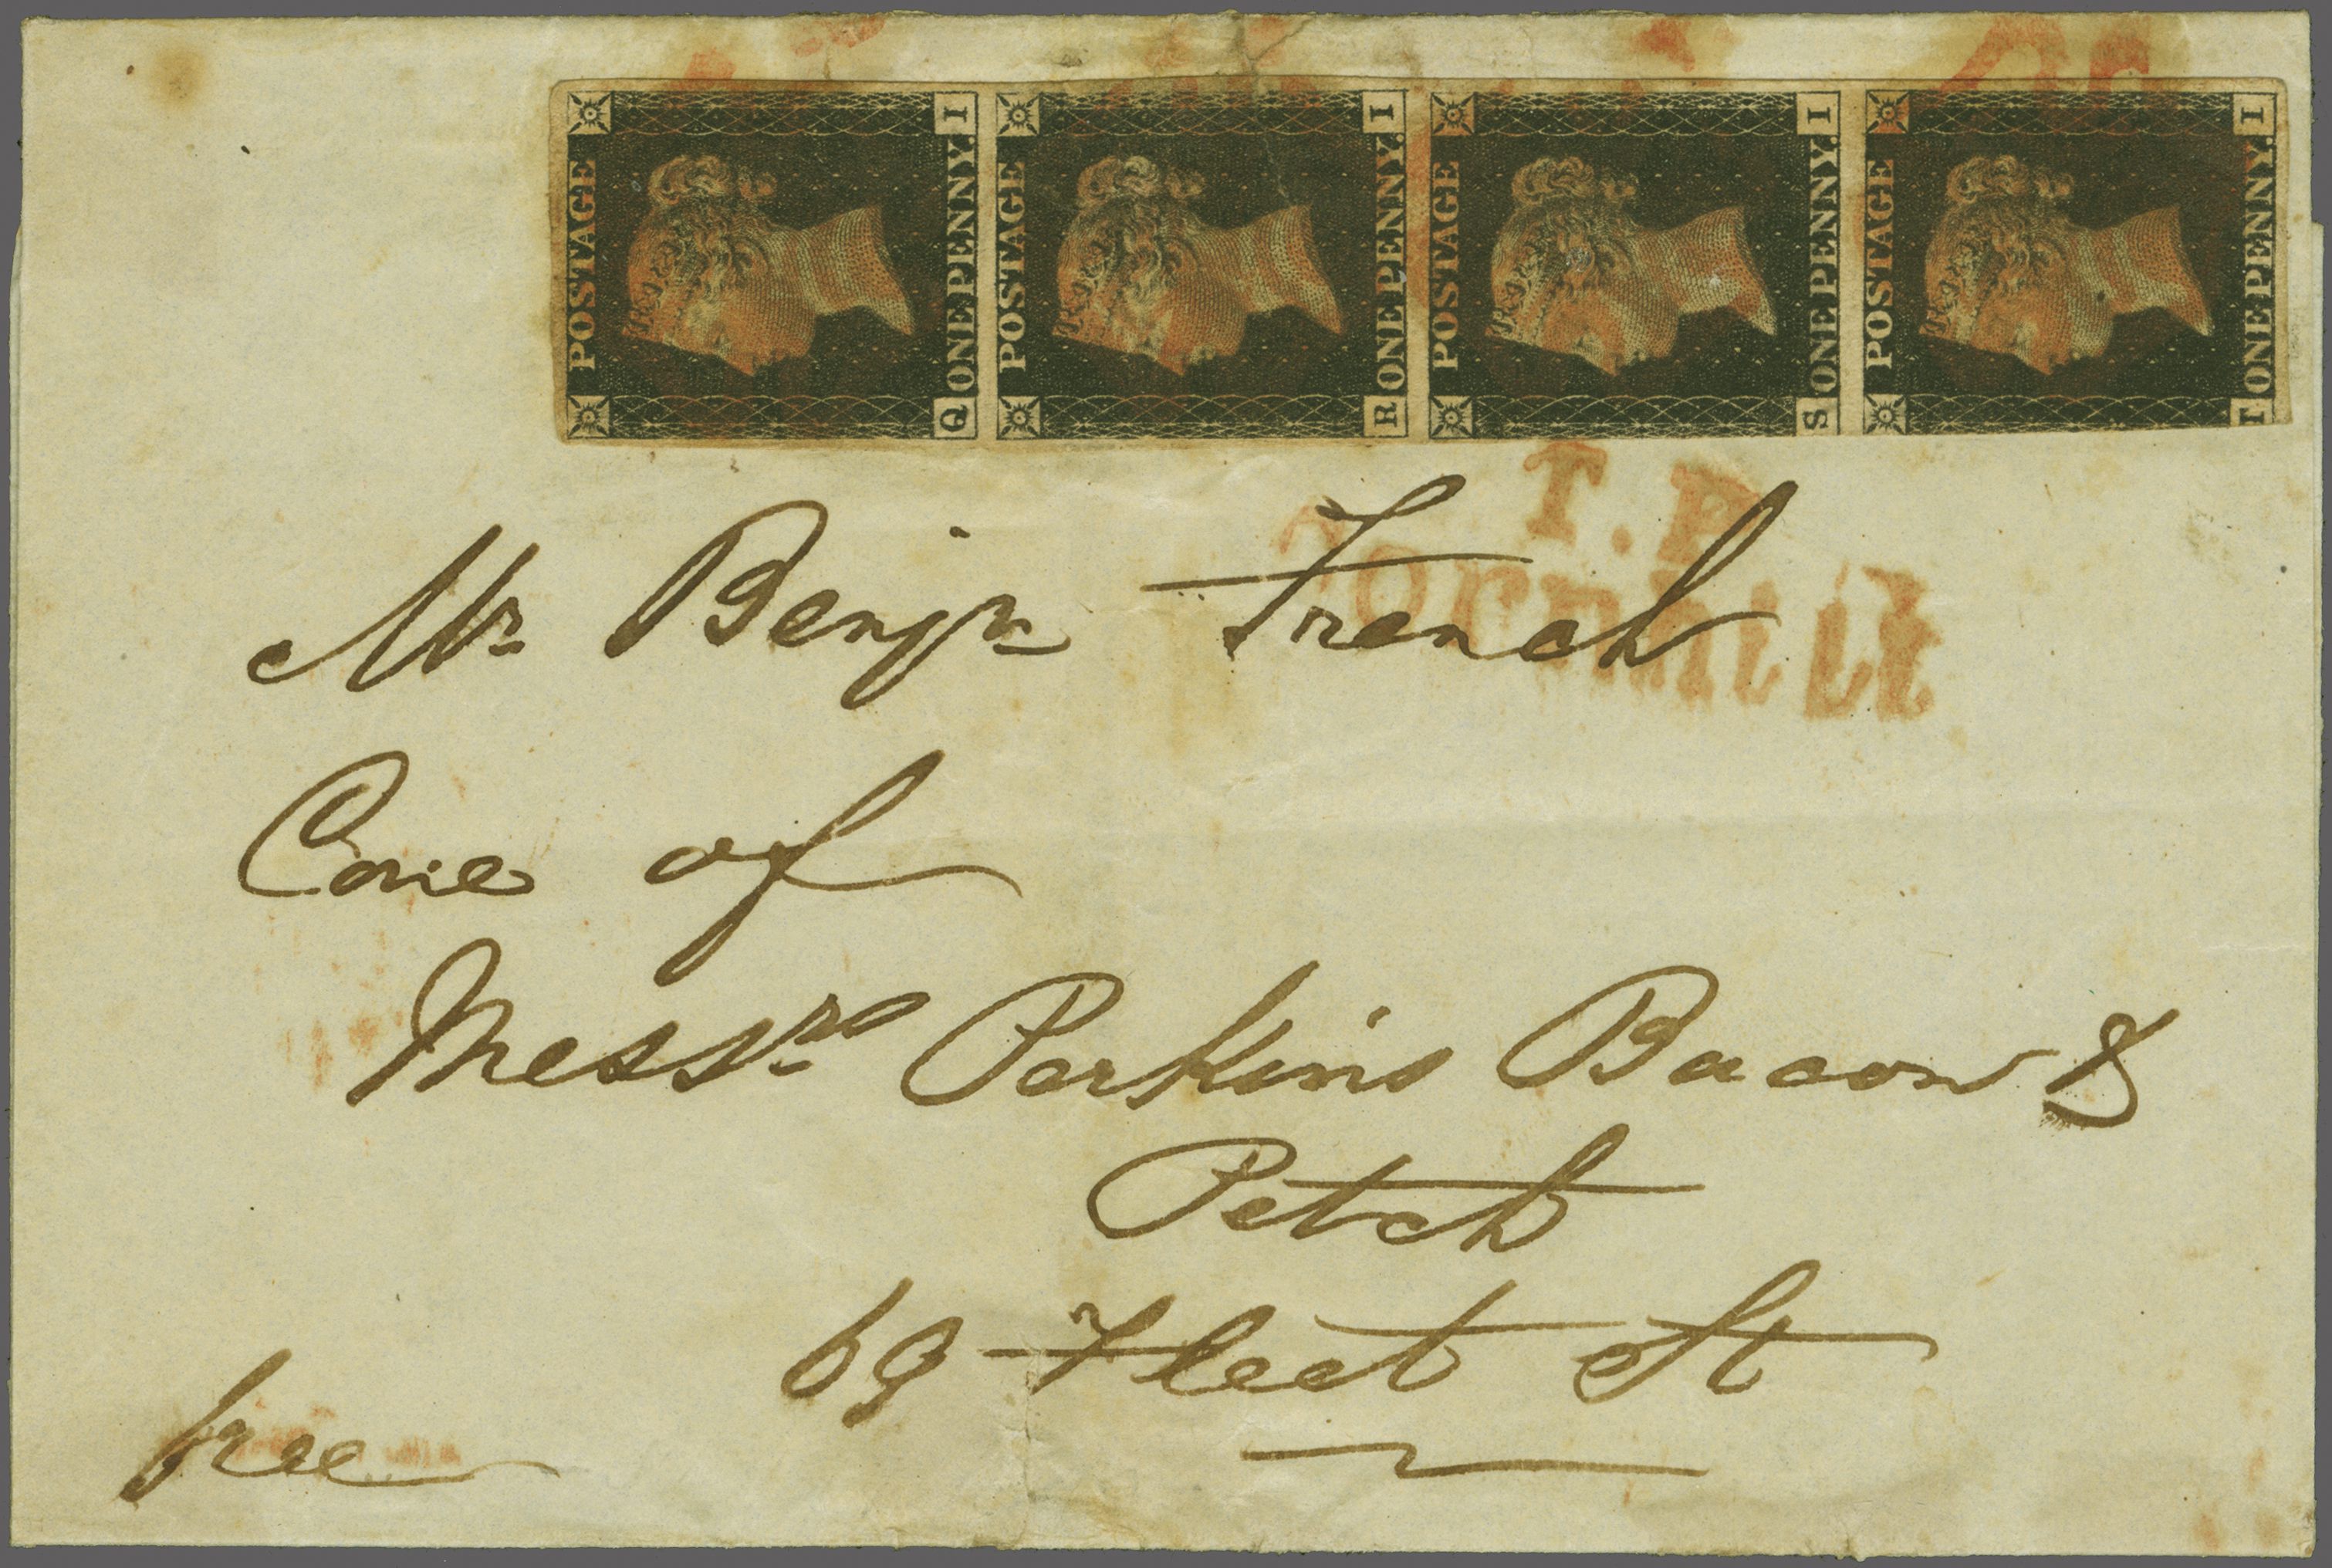 POSTAGE I Q ONE PENNY.
POSTAGE I R ONE PENNY.
POSTAGE I S ONE PENNY.
POSTAGE I T ONE PENNY.
T.P
Cornhill
Mr Benjn French
Care of
Messrs Perkins Bacon &
Petch
69 Fleet St
free